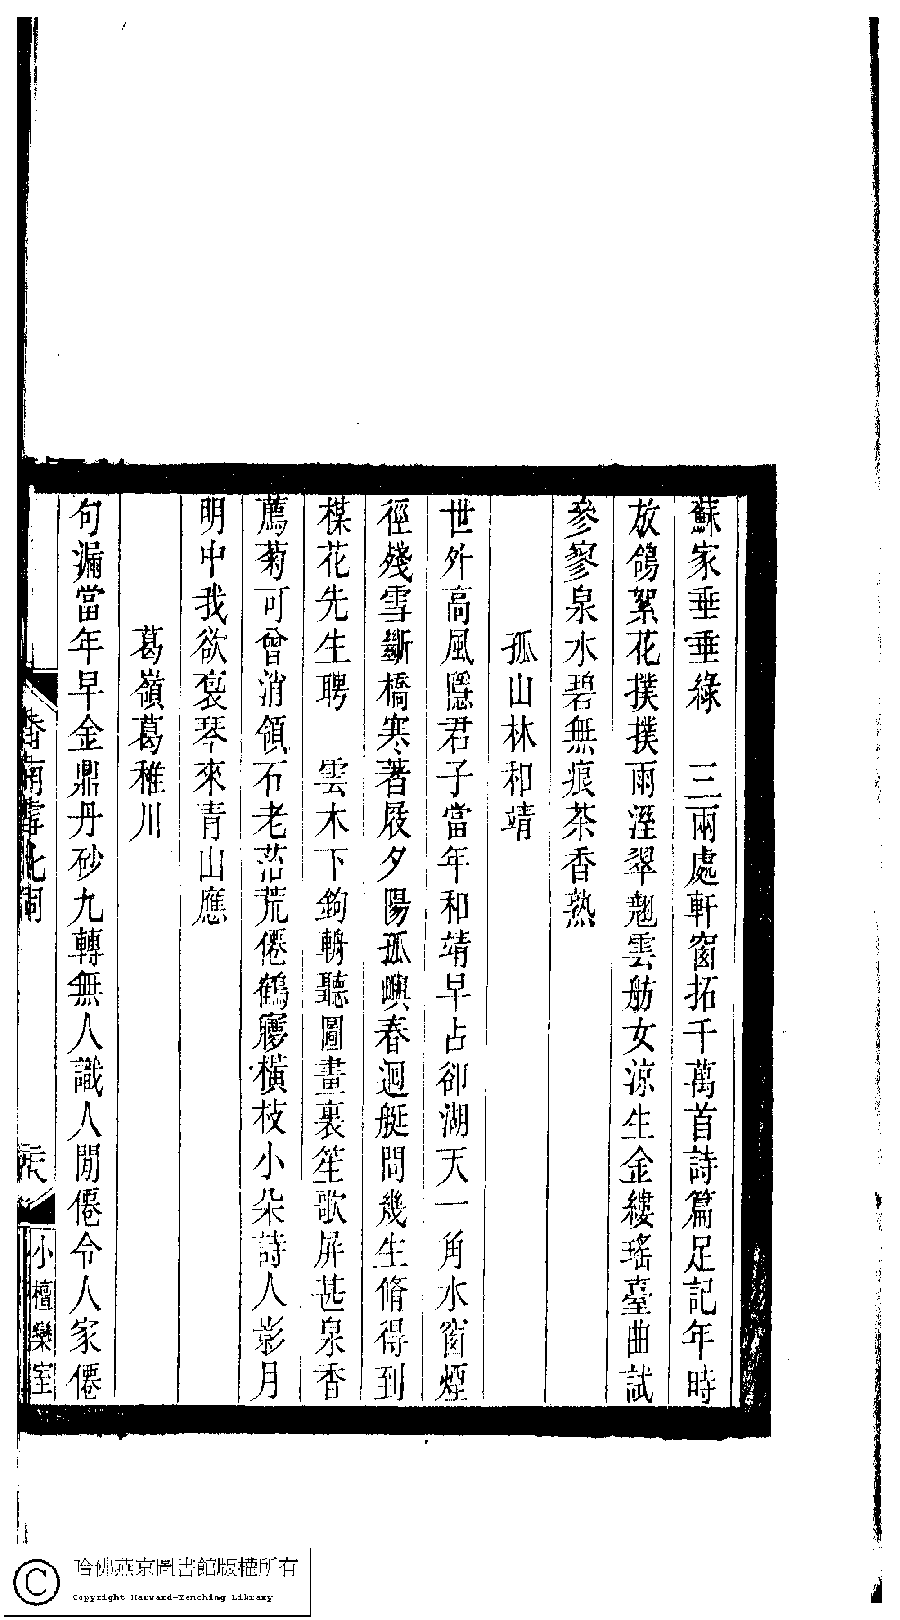 蘇家垂垂綠　三兩處軒窗拓千萬首詩篇足記年時
放鴿絮花撲撲雨溼翠翹雲舫女涼生金縷瑤臺曲試
參寥泉水碧無痕茶香熟
孤山林和靖
世外高風隱君子當年和靖早占卻湖天一角水窗煙
徑殘雪斷橋寒著屐夕陽孤嶼春迴艇問幾生脩得到
楳花先生聘　雲木下鉤輈聽圖畫裏笙歌屏甚泉香
薦菊可曾消領石老苔荒僊鶴廖橫枝小朵詩人影月
明中我欲褎琴來青山應
葛嶺葛稚川
句漏當年早金鼎丹砂九轉無人識人閒僊令人家僊
小檀欒室
哈佛燕京圖書館版權所有
Copyright Harvard-Yenching Library